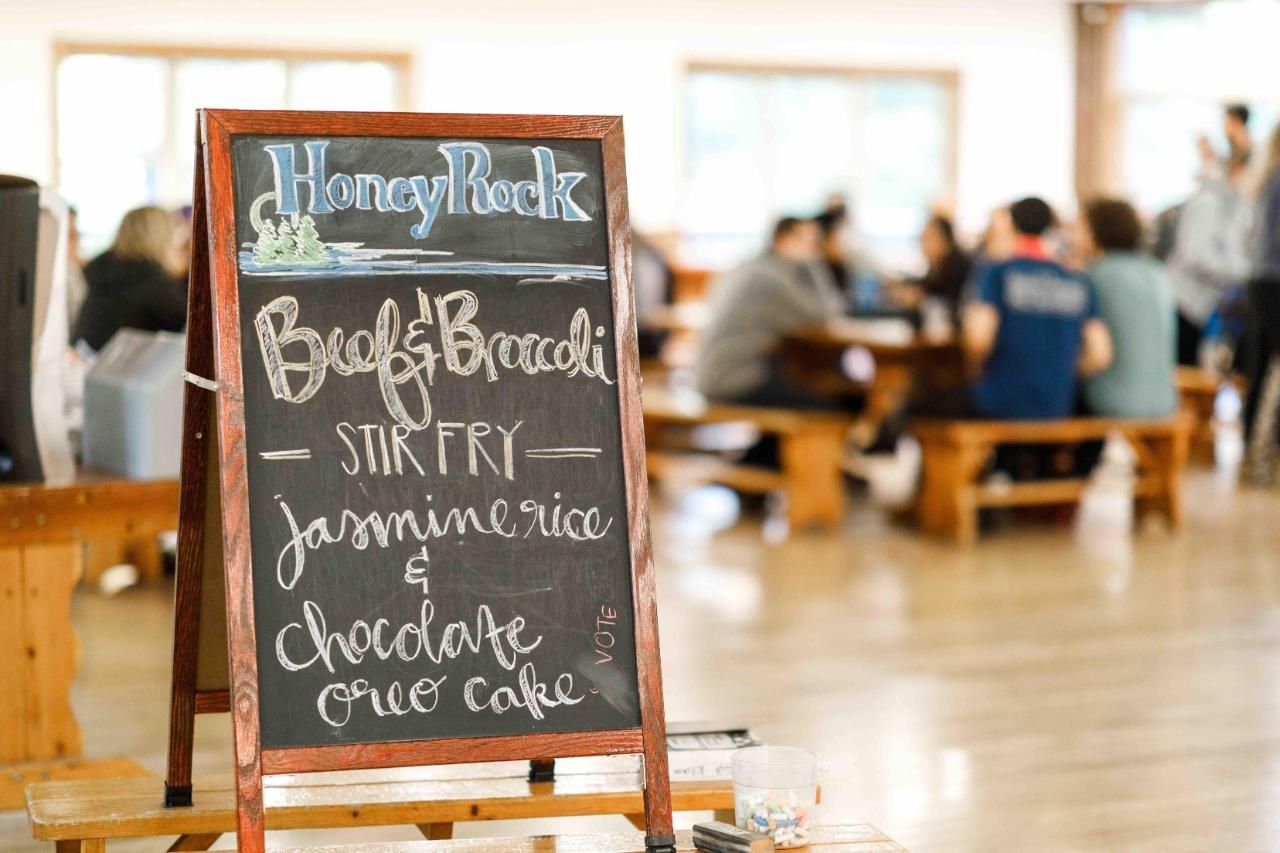 HoneyRock
Beef & Broccoli
STIR FRY
Jasmine rice
&
chocolate
oreo cake
VOTE